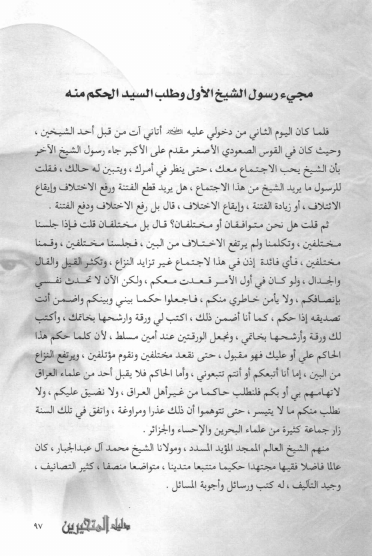 مجيء رسول الشيخ الأول وطلب السيد الحكم منه
فلما كان اليوم الثاني من دخولي عليه أتاني آت من قبل أحد الشيخين ،
وحيث كان في القوس الصعودي الأصغر مقدم على الأكبر جاء رسول الشيخ الآخر
بأن الشيخ يحب الاجتماع معك ، حتى ينظر في أمرك ، ويتبين له حالك ، فقلت
للرسول ما يريد الشيخ من هذا الاجتماع ، هل يريد قطع الفتنة ورفع الاختلاف وإيقاع
الائتلاف ، أو زيادة الفتنة ، وإيقاع الاختلاف ، قال بل رفع الاختلاف ودفع الفتنة .
ثم قلت هل نحن متوافقان أو مختلفان؟ قال بل مختلفان قلت فإذا جلسنا
مختلفين ، وتكلمنا ولم يرتفع الاختلاف من البين ، فجلسنا مختلفين ، وقمنا
مختلفين ، فأي فائدة إذن في هذا لاجتماع غير تزايد النزاع ، وتكثر القيل والقال
والجدال ، ولو كان في أول الأمر قعدت معكم ، ولكن الآن لا تحدث نفسي
بإنصافكم ، ولا يأمن خاطري منكم ، فاجعلوا حكما بيني وبينكم واضمن أنت
تصديقه إذا حكم ، كما أنا أضمن ذلك ، اكتب لي ورقة وارشحها بخاتمك ، وأكتب
لك ورقة وأرشحها بخاتمي ، ونجعل الورقتين عند أمين مسلط ، لأن كلما حكم هذا
الحاكم علي أو عليك فهو مقبول ، حتى نقعد مختلفين ونقوم مؤتلفين ، ويرتفع النزاع
من البين ، إما أنا أتبعكم أو أنتم تتبعوني ، وأما الحاكم فلا يقبل أحد من علماء العراق
لاتهامهم بي أو بكم فلنطلب حاكما من غير أهل العراق ، ولا نضيق عليكم ، ولا
نطلب منكم ما لا يتيسر ، حتى تتوهموا أن ذلك عذرا ومراوغة ، واتفق في تلك السنة
زار جماعة كثيرة من علماء البحرين والإحساء والجزائر .
منهم الشيخ العالم الممجد المؤيد المسدد ، ومولانا الشيخ محمد آل عبدالجبار ، كان
عالما فاضلا فقيها مجتهدا حكيما متتبعا متدينا ، متواضعا منصفا ، كثير التصانيف ،
وجيد التأليف ، له كتب ورسائل وأجوبة المسائل .
دليل المتحيرين ٩٧